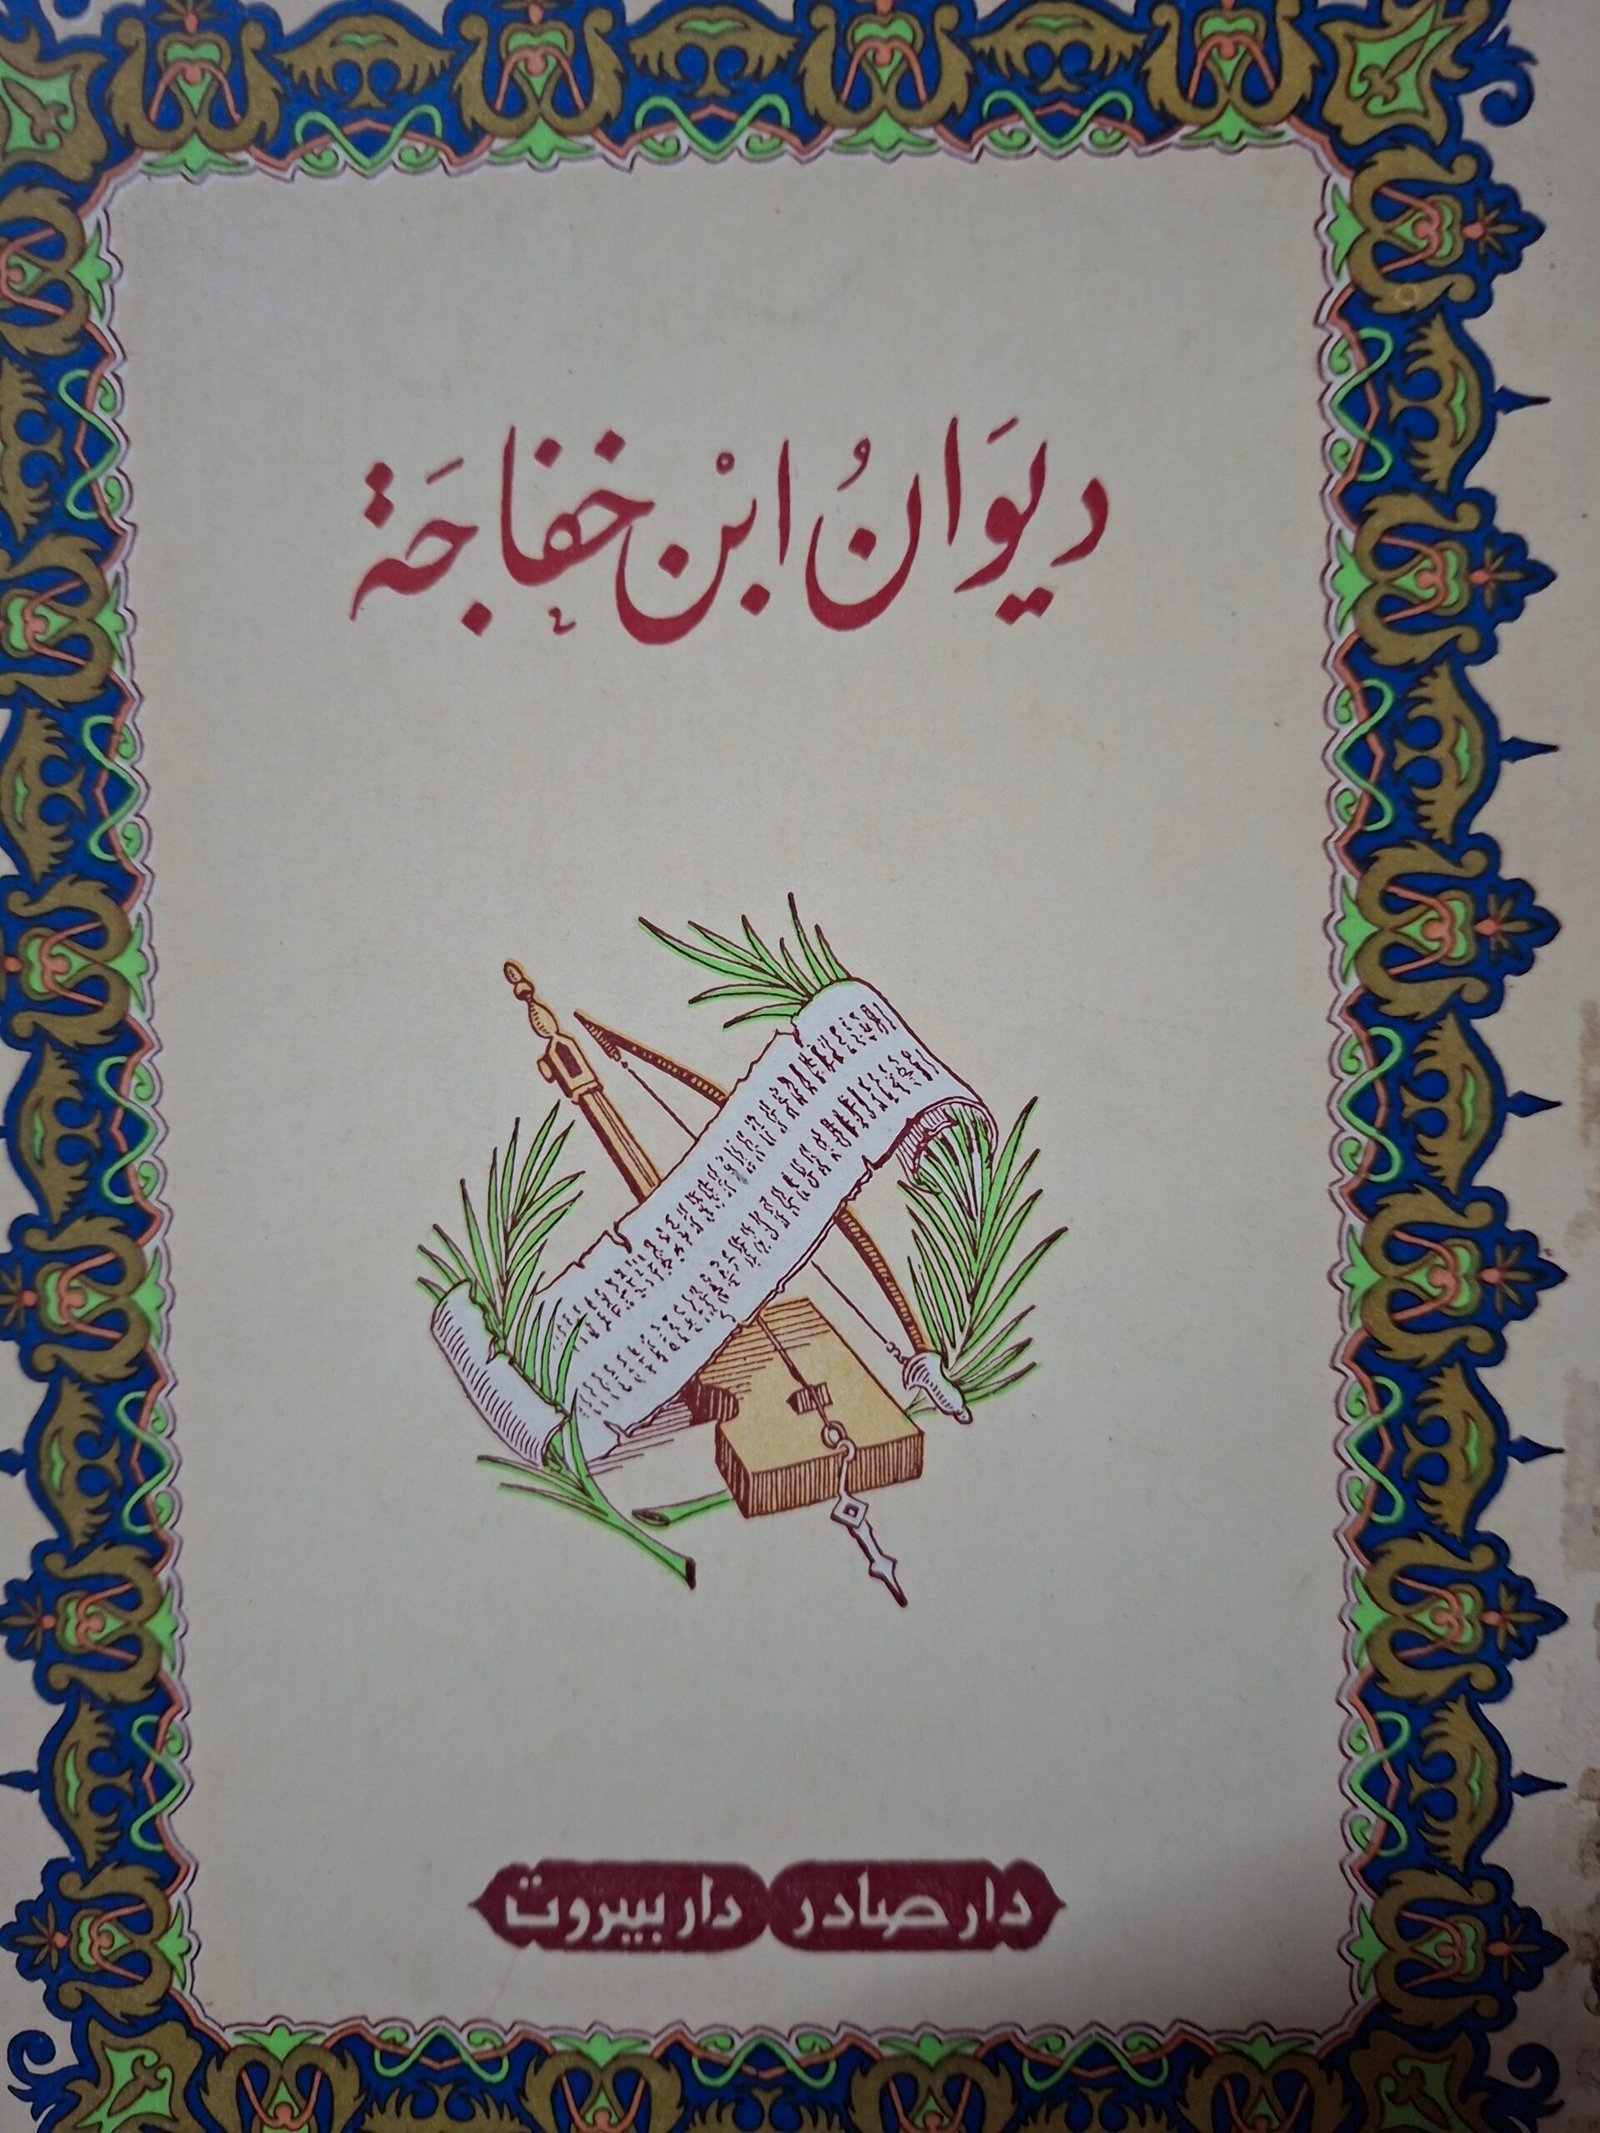 ديوَانُ ابْن خفاجَة
دار صادر دار بيروت